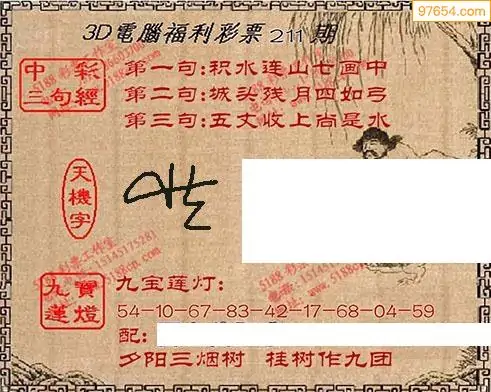 97654.com
3D電腦福利彩票 211 期
中彩
三句經
第一句:积水连山七画中
第二句:城头残月四如弓
第三句:五丈收上尚是水
天機字
九寶
蓮燈
九宝莲灯:
54-10-67-83-42-17-68-04-59
配:
夕阳三烟树 桂树作九团